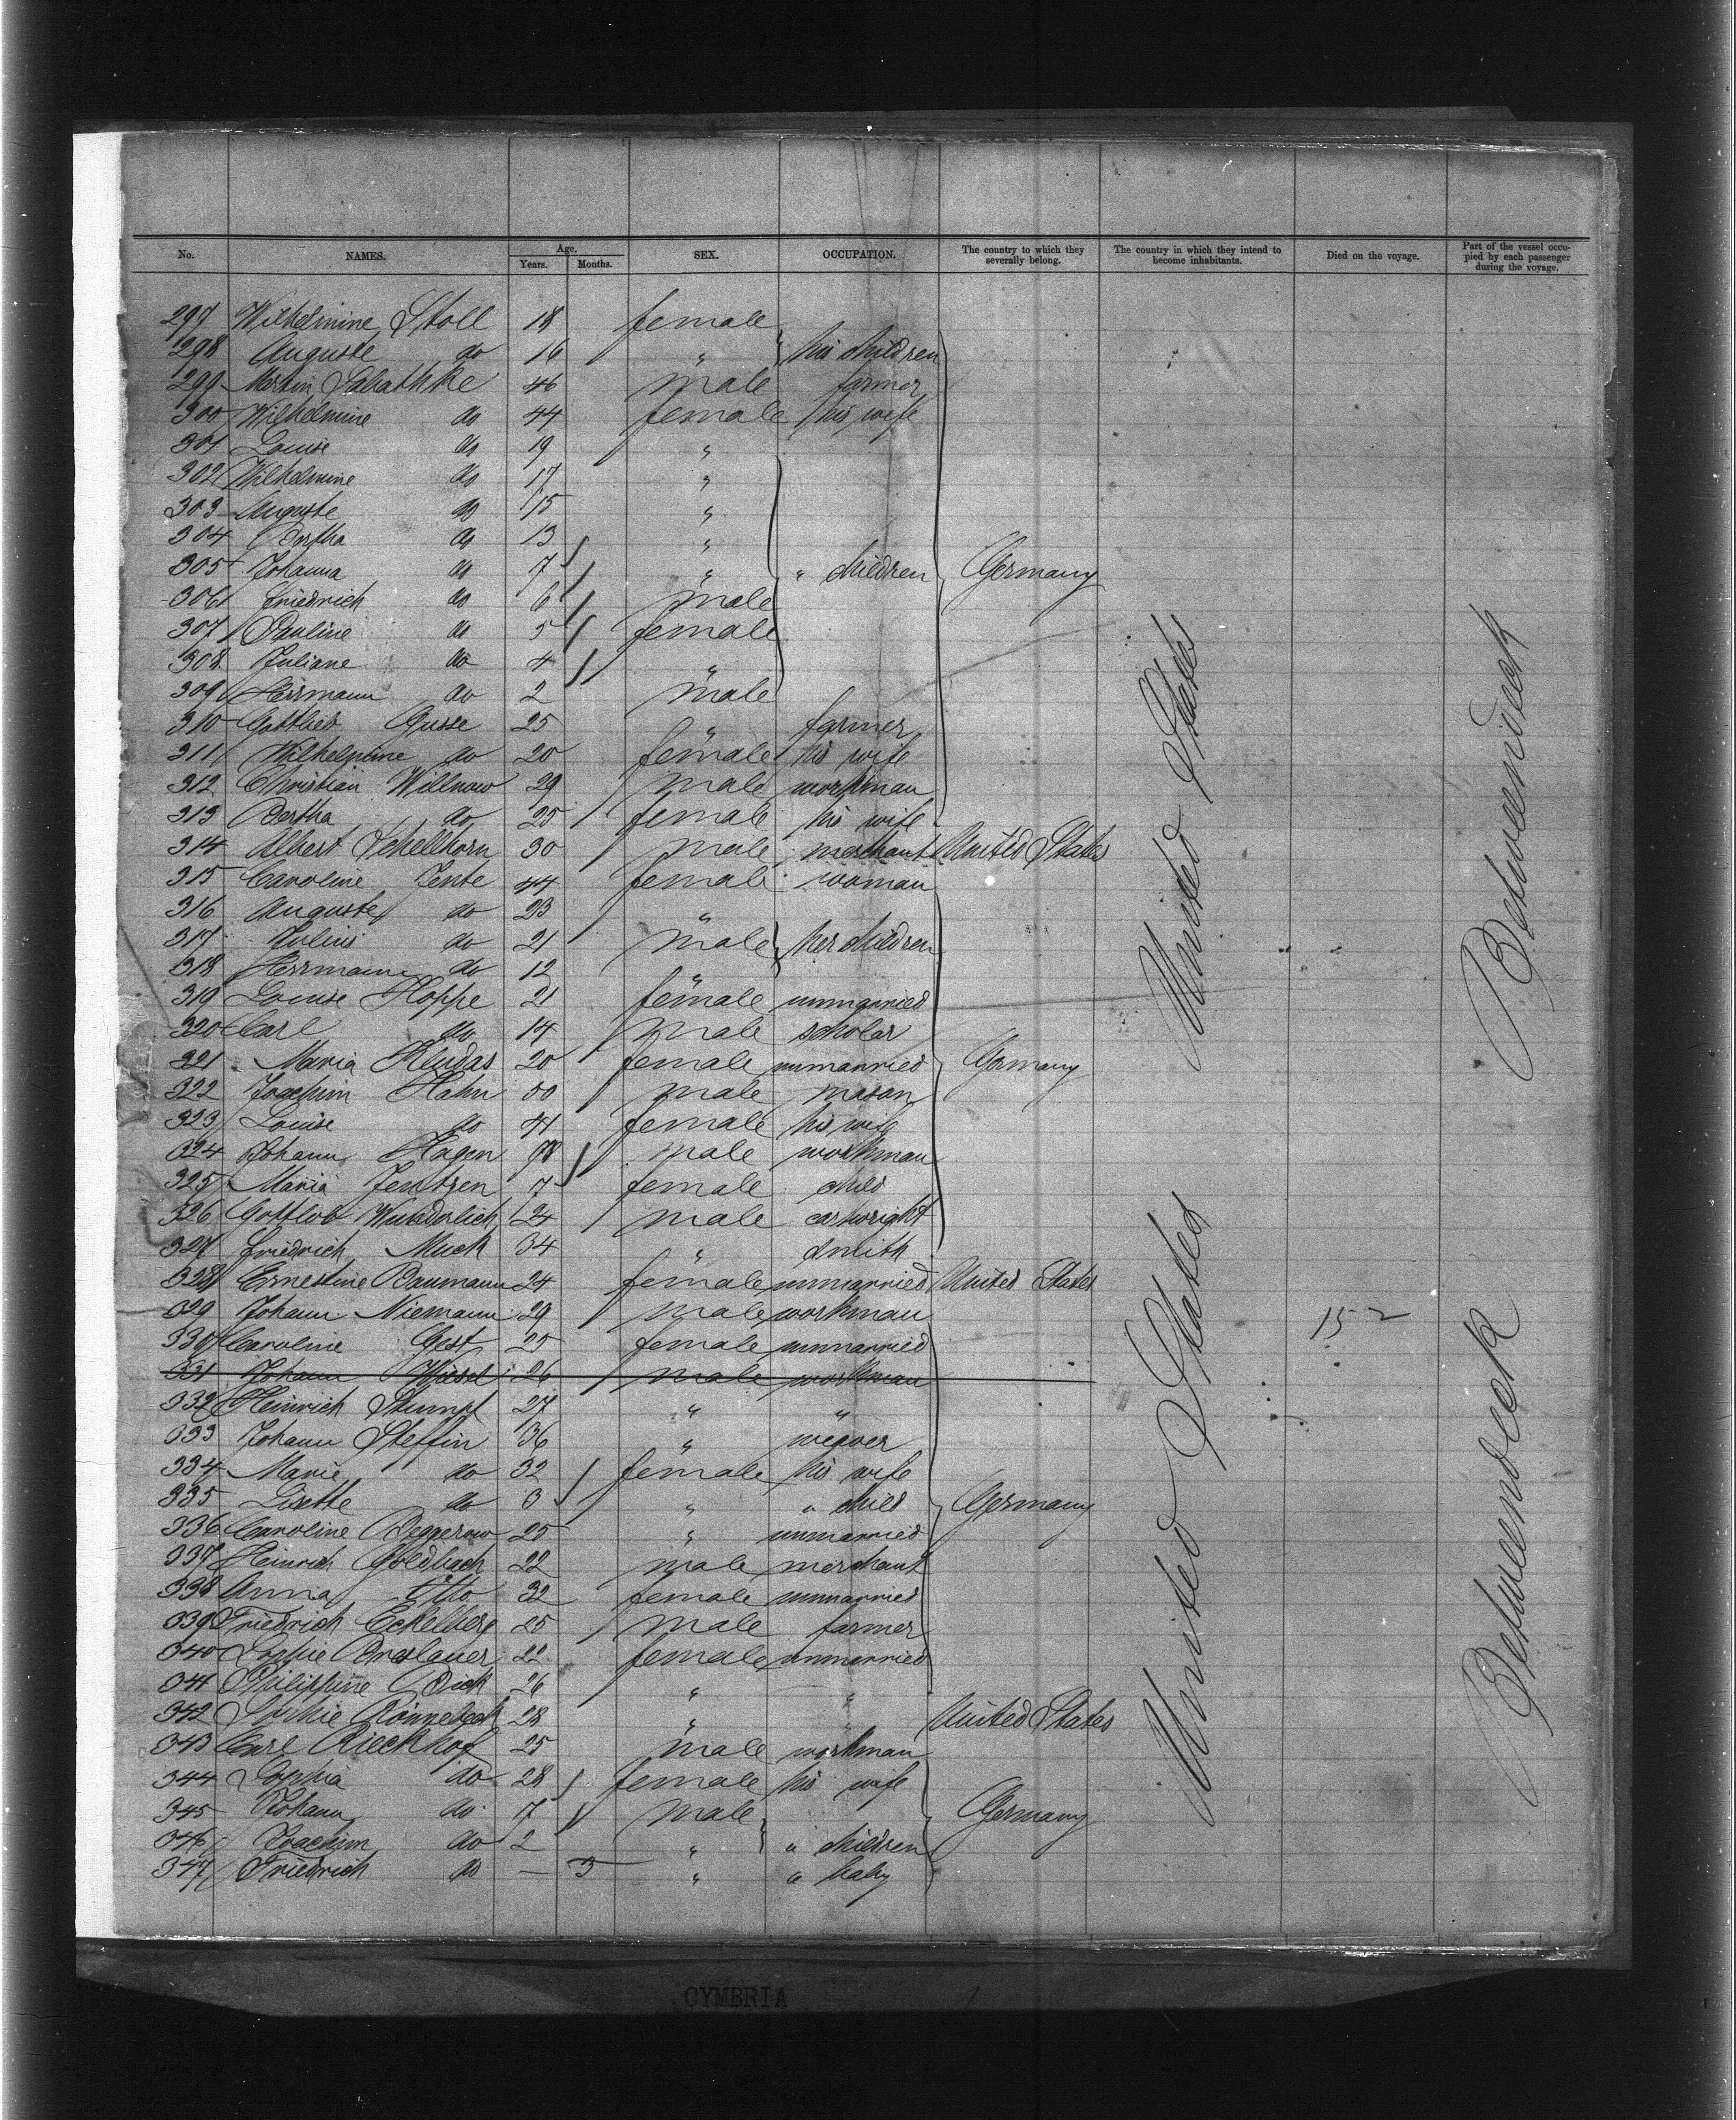 No. NAMES. Age. Years. Months. SEX. OCCUPATION. The country to which they severally belong. The country in which they intend to become inhabitants. Died on the voyage. Part of the vessel occupied by each passenger during the voyage.
297 Wilhelmine Stoll 18 female
298 Auguste do 16 " his children
299 Martin 46 male farmer
300 Wilhelmine do 44 female his wife
301 Louise do 19 "
302 Wilhelmine do 17 "
303 Auguste do 15 "
304 Bertha do 13 "
305 Johanna do 7 " " children Germany
306 Friedrich do 6 male
307 Pauline do 5 female
308 Juliane do 4 "
309 Herrmann do 2 male
310 Gottlieb Gusse 25 " farmer
311 Wilhelmine do 20 female his wife
312 Christian Willnow 29 male workman
313 Bertha do 25 female his wife
314 Albert Schellhorn 30 male merchant United States
315 Caroline Jente 44 female woman
316 Auguste do 23 "
317 Julius do 21 male her children
318 Herrmann do 12 "
319 Louise Hoppe 21 female unmarried
320 Carl do 14 male scholar
321 Maria 20 female unmarried Germany
322 Joachim Hahn 50 male mason
323 Louise do 41 female his wife
324 Johann Hagen male workman
325 Maria Jentzen 7 female child
326 Gottlob Wunderlich 24 male cartwright
327 Friedrich Muck 34 " smith
328 Ernestine Baumann 24 female unmarried United States
329 Johann Niemann 29 male workman
330 Caroline Gest 25 female unmarried
331 Johann 26 male workman
332 Heinrich Stumpf 27 " "
333 Johann Steffin 36 " weaver
334 Marie do 32 female his wife
335 Lisette do 3 " " child Germany
336 Caroline Beggerow 25 " unmarried
337 Heinrich Goldbach 22 male merchant
338 Anna Otto 32 female unmarried
339 Friedrich Eckelberg 25 male farmer
340 Sophie Breslauer 22 female unmarried
341 Philippine Dick 26 " "
342 Sophie Rönnebeck 28 " " United States
343 Carl Rieckhof 25 male workman
344 Sophia do 28 female his wife
345 Johann do 7 male Germany
346 Joachim do 2 " " children
347 Friedrich do — 3 " " baby
United States
United States
152
Betweendeck
Betweendeck
CYMBRIA